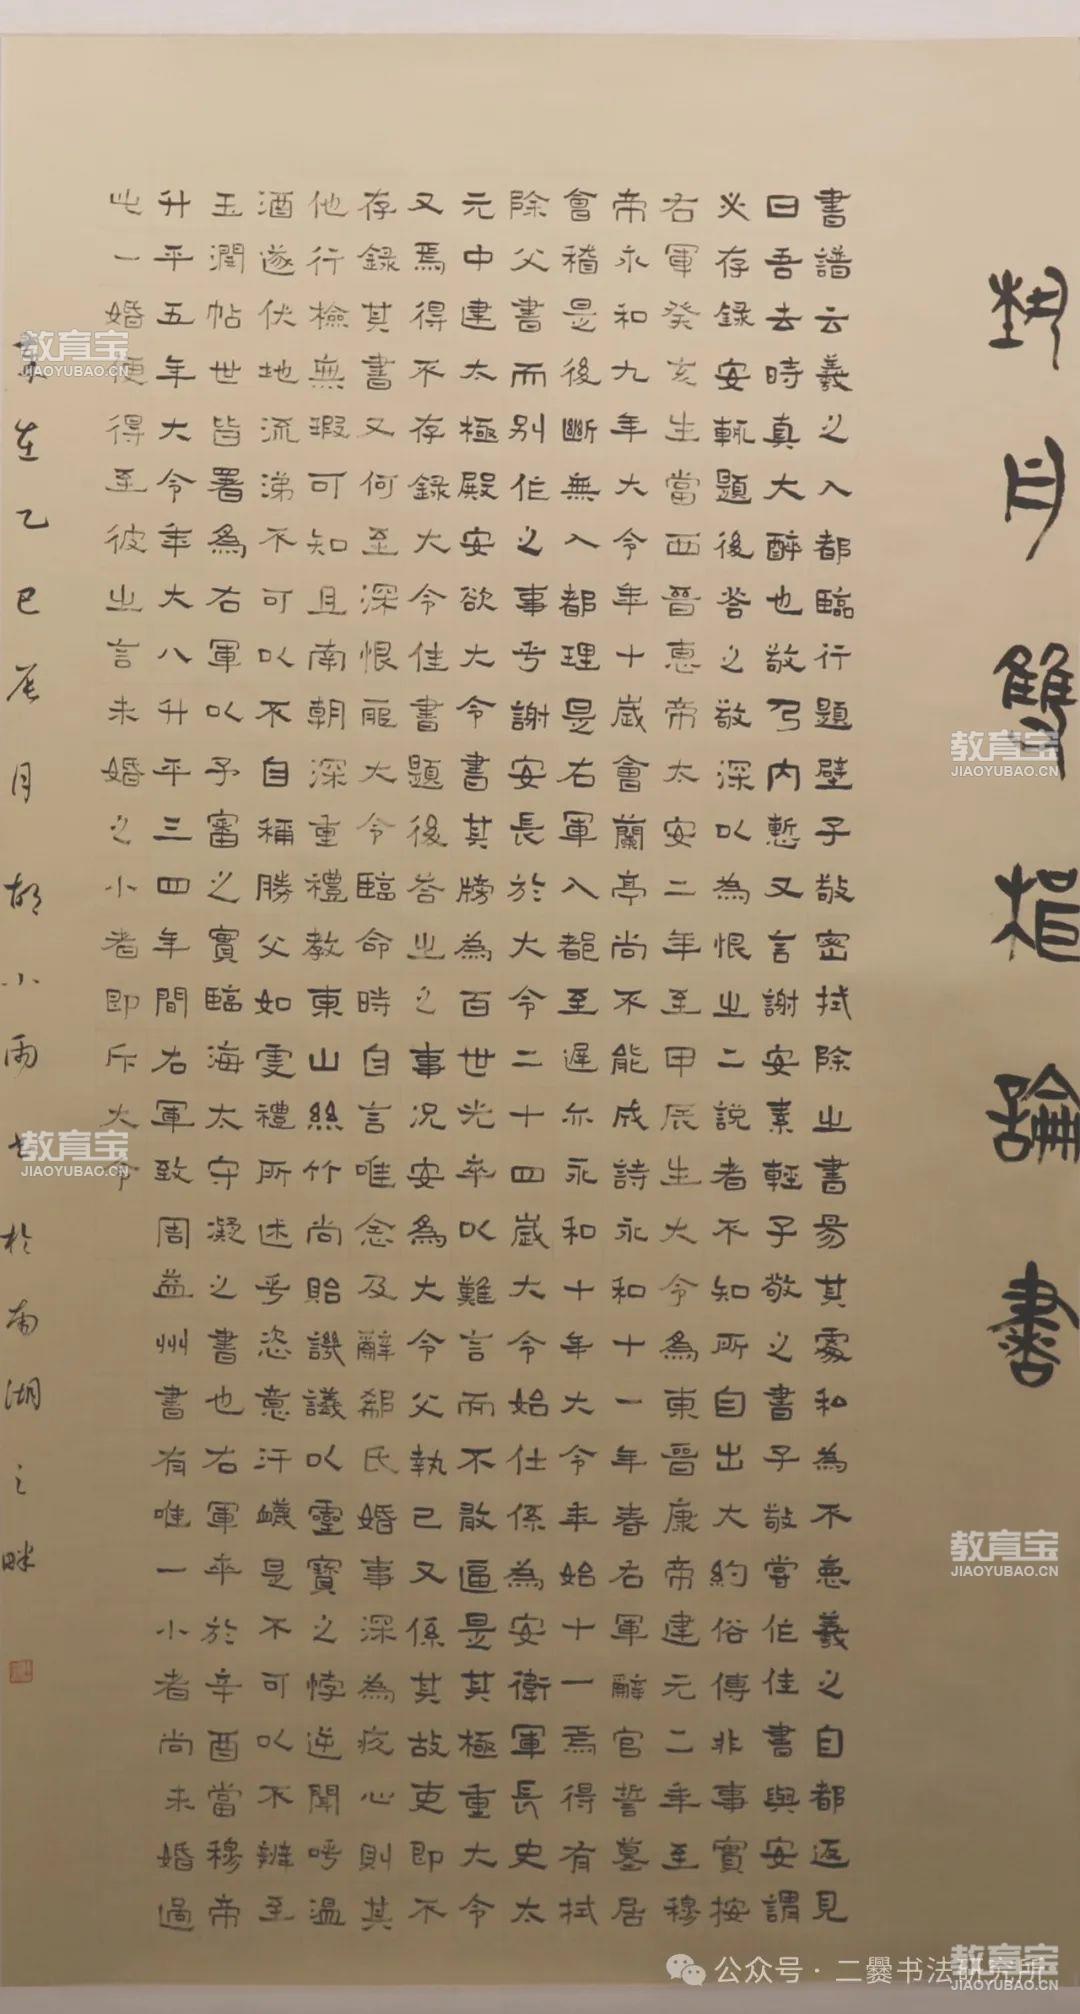 埶舟雙楫論書
書譜云羲之入都臨行題壁子敬密拭除之書易其處私為不惡羲之自都返見
曰吾去時真大醉也敬乃內慙又言謝安素輕子敬之書子敬嘗作佳書與安謂
必存錄安輒題後答之敬深以為恨之二說者不知所自出大約俗傳非事實按
右軍癸亥生當西晉惠帝太安二年至甲辰生大令為東晉康帝建元二年至穆
帝永和九年大令年十歲會蘭亭尚不能成詩永和十一年春右軍辭官誓墓居
會稽是後斷無入都理是右軍入都至遲亦永和十年大令年始十一焉得有拭
除父書而別作之事乎謝安長於大令二十四歲大令始仕係為安衛軍長史太
元中建太極殿安欲大令書其牓為百世光卒以難言而不敢逼是其極重大令
又焉得不存錄大令佳書題後答之之事況安為大令父執己又係其故吏即不
存錄其書又何至深恨耶大令臨命時自言唯念及辭郗氏婚事深為疚心則其
他行檢無瑕可知且南朝深重禮教東山絲竹尚貽譏議以靈寶之悖逆聞呼溫
酒遂伏地流涕不可以不自稱勝父如虔禮所述乎恣意汙衊是不可以不辨至
玉潤帖世皆署為右軍以予審之實臨海太守凝之書也右軍卒於辛酉當穆帝
升平五年大令年大八升平三四年間右軍致周益州書有唯一小者尚未婚過
此一婚便得至彼之言未婚之小者即斥大令
歲在乙巳辰月胡小雨書於南湖之畔
教育宝
JIAOYUBAO.CN
教育宝
JIAOYUBAO.CN
教育宝
JIAOYUBAO.CN
教育宝
JIAOYUBAO.CN
教育宝
JIAOYUBAO.CN
公众号·二爨书法研究所